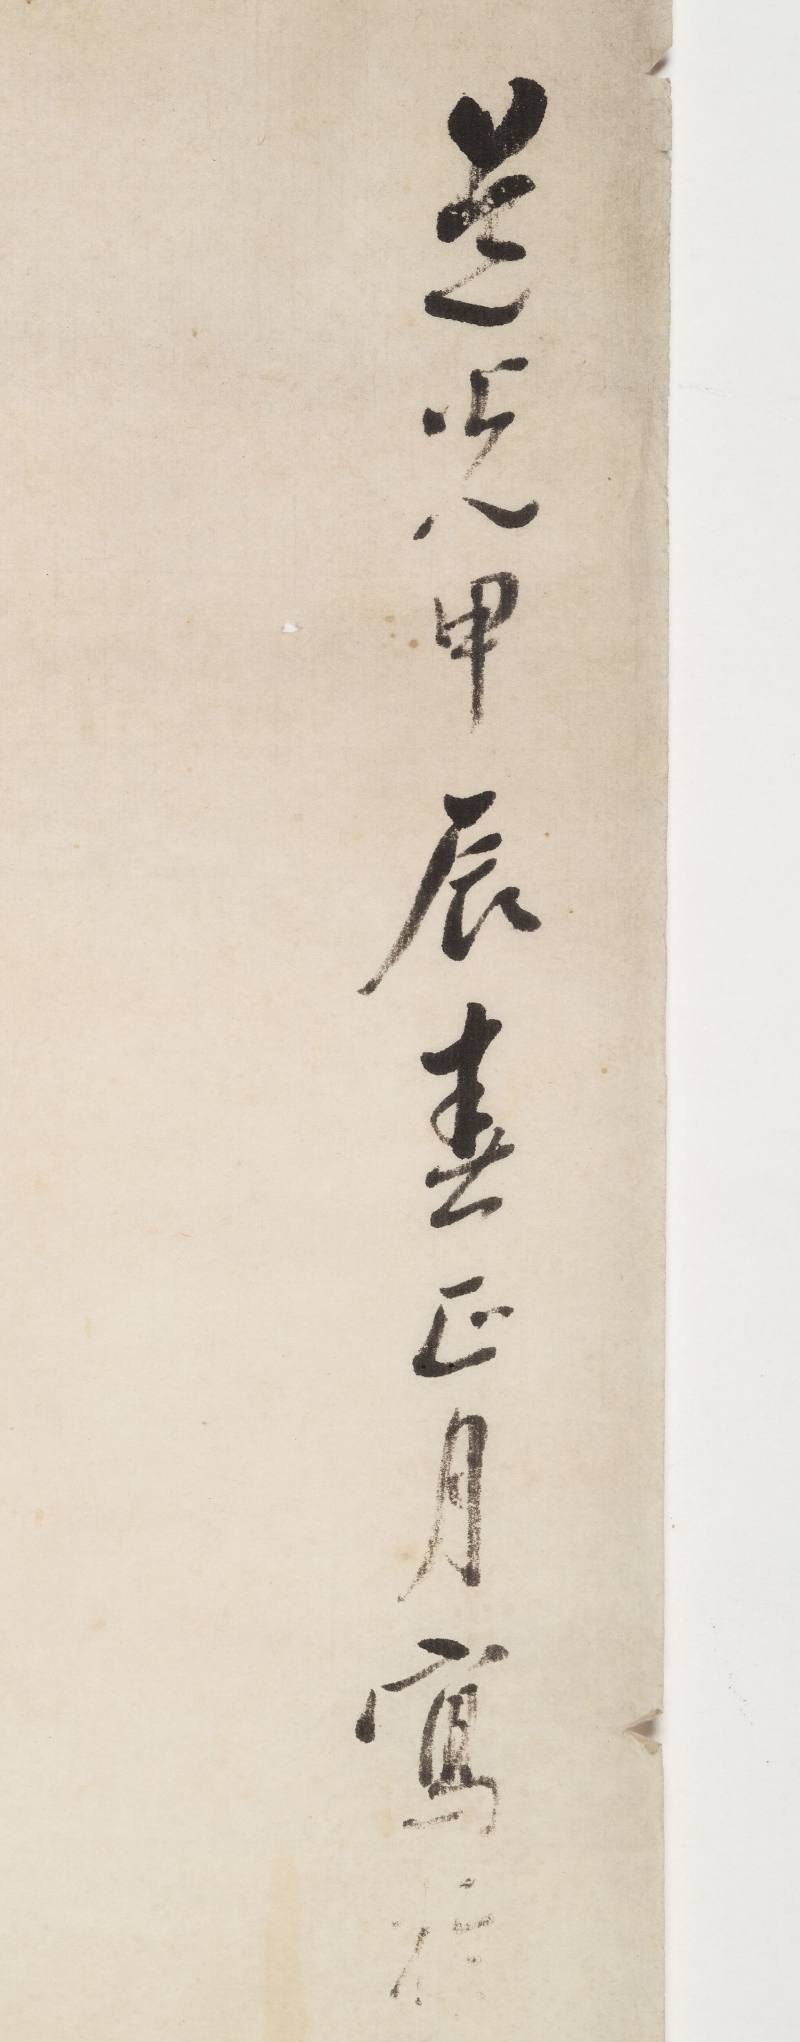 道光甲辰春正月寫於